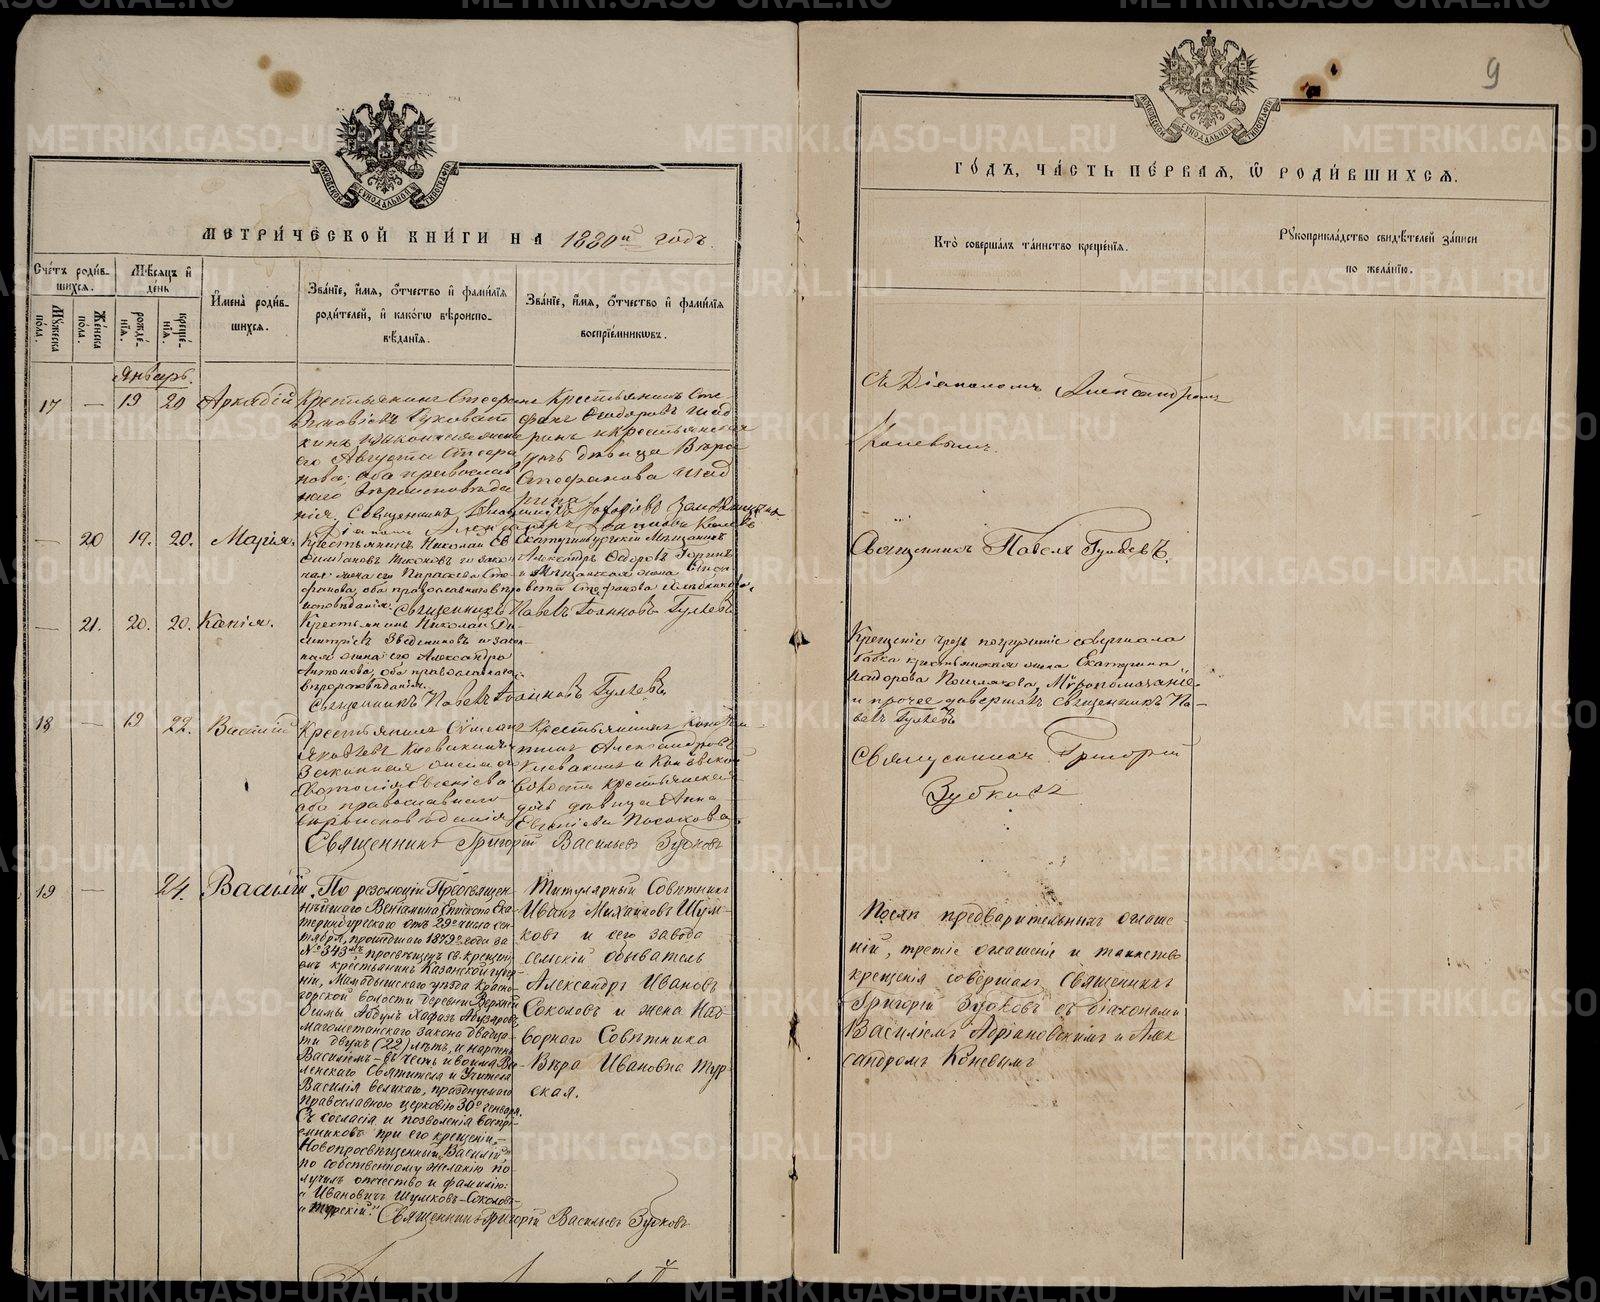 МЕТРИ́ЧЕСКОЙ КНИ́ГИ НА 1880й годъ.
Счетъ роди́вшихся.
Мѣсяцъ и де́нь
Мужеска по́ла.
Же́нска по́ла.
рожде́нїѧ.
креще́нїѧ.
Имена̀ роди́вшихся.
Зва́нїе, и́мѧ, о́тчество и фами́лїѧ роди́телей, и како́гѡ вѣроисповѣ́данїѧ.
Зва́нїе, и́мѧ, о́тчество и фами́лїѧ воспрїе́мникѡвъ.
Январь.
17 — 19 20 Аркадій
Крестьянинъ Стефанъ
законная жена
его Августа Стефа
нова, оба православ
наго вѣроисповѣда
нія.
Крестьянинъ Сте
фанъ Ѳеодоровъ
и крестьянская
дочь дѣвица Вѣра
Стефанова
— 20 19. 20. Марія.
Крестьянинъ Николай
Никоновъ и закон
ная жена его Параскева Сте
фанова, оба православнаго вѣро
исповѣданія.
Екатеринбургскій Мѣщанинъ
Александръ Ѳедоровъ
и Мѣщанская жена
Стефанова
Священникъ Павелъ Іоанновъ Гуляевъ
— 21. 20. 20. Ксенія.
Крестьянинъ Николай Ди
митріевъ и закон
ная жена его Александра
Антонова, оба православнаго
вѣроисповѣданія.
Священникъ Павелъ Іоанновъ Гуляевъ
18 — 19 22. Василій
Крестьянинъ
Яковлевъ
Законная жена его
Евгеніева
оба православнаго
вѣроисповѣданія
Крестьянинъ
Александровъ
волости крестьянская
дочь дѣвица Анна
Евгеніева
Священникъ Григорій Васильевъ Зубковъ
19 — 24. Василій
По резолюціи Преосвящен
нѣйшаго Веніамина Епископа Ека
теринбургскаго отъ 29го числа сен
тября, прошедшаго 1879го года за
№ 343мъ просвѣщенъ св. крещені
емъ крестьянинъ Казанской губер
ніи, Мамадышскаго уѣзда Красно
горской волости деревни Верхней
Ошмы Абдулъ Хафазъ Абузяровъ
магометанскаго закона двадца
ти двухъ (22) лѣтъ, и нареченъ
Василіемъ — въ честь и во имя Все
ленскаго Святителя и Учителя
Василія великаго, празднуемаго
православною церковію 30го генваря.
Съ согласія и позволенія воспрі
емниковъ при его крещеніи,
Новопросвѣщенный Василій
по собственному желанію по
лучилъ отчество и фамилію:
„Ивановичъ Шумковъ-Соколовъ
и Турскій."
Титулярный Совѣтникъ
Иванъ Михайловъ Шум
ковъ и сего завода
сельскій обыватель
Александръ Ивановъ
Соколовъ и жена Над
ворнаго Совѣтника
Вѣра Ивановна Тур
ская.
Священникъ Григорій Васильевъ Зубковъ
9
ГО́ДЪ, ЧА́СТЬ ПЕ́РВАѦ, Ѡ РОДИ́ВШИХСѦ.
Кто̀ соверша́лъ та́инство креще́нїѧ.
Рꙋкоприкла́дство свидѣ́телей за́писи по жела́нїю.
съ Діакономъ Александромъ
Коневымъ.
Священникъ Павелъ Гуляевъ.
Крещеніе чрезъ погруженіе совершала
бабка крестьянская жена Екатерина
Мѵропомазаніе
и прочее довершалъ священникъ Па
велъ Гуляевъ
Священникъ Григорій
Зубковъ
Послѣ предварительныхъ оглаше
ній, третіе оглашеніе и таинство
крещенія совершалъ Священникъ
Григорій Зубковъ съ діаконами
Василіемъ Адріановскимъ и Алек
сандромъ Коневымъ
METRIKI.GASO-URAL.RU